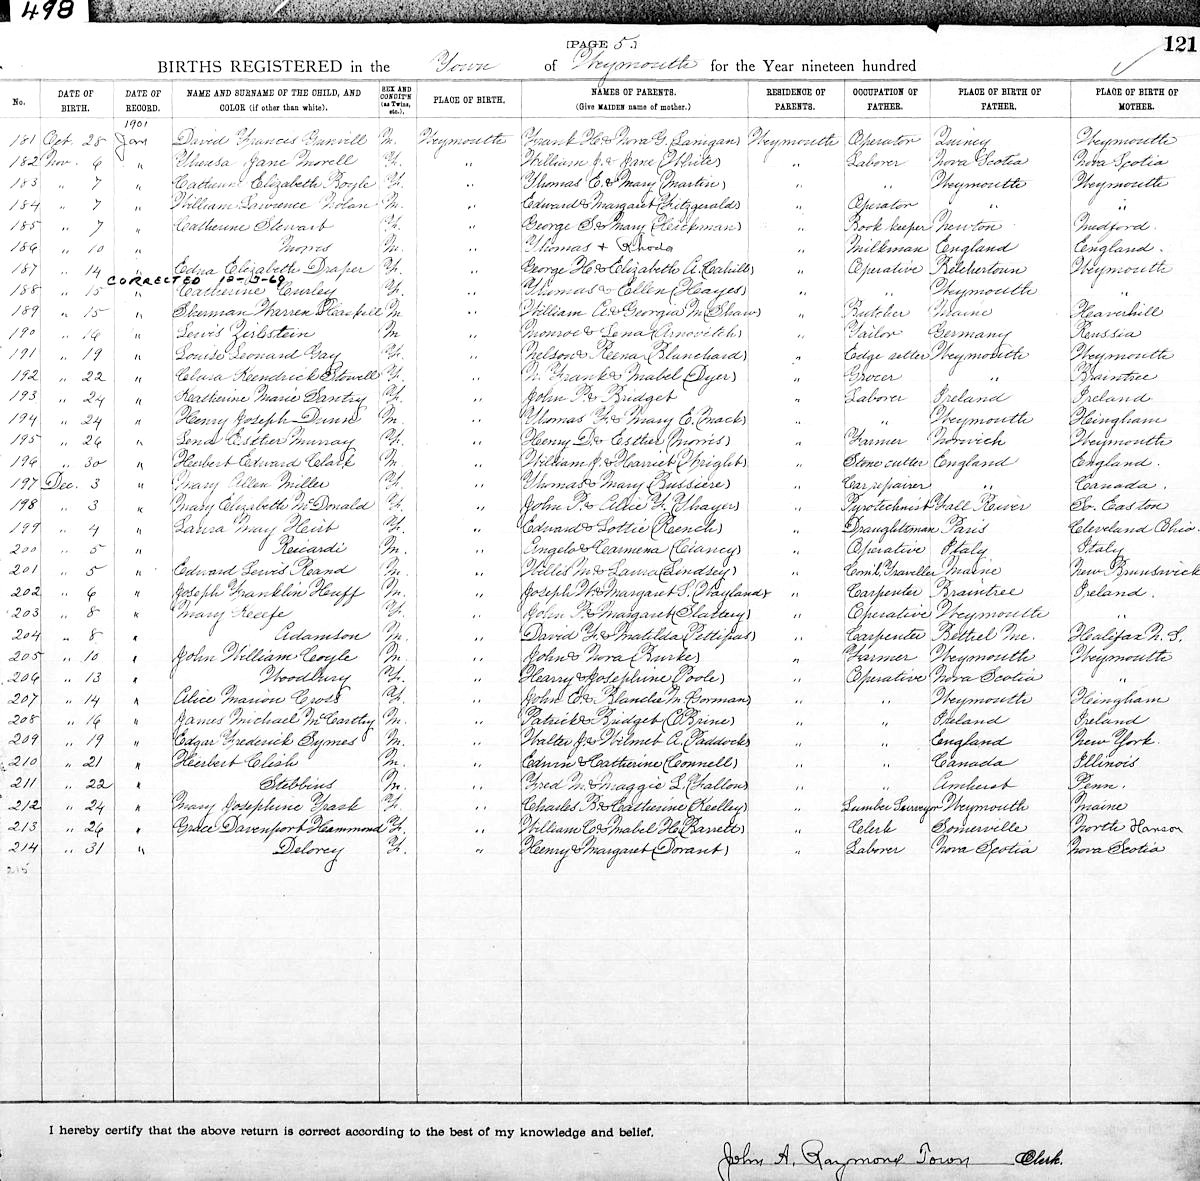 498
[PAGE 5.]
121
BIRTHS REGISTERED in the Town of Weymouth for the Year nineteen hundred
No. DATE OF BIRTH. DATE OF RECORD. NAME AND SURNAME OF THE CHILD, AND COLOR (if other than white). SEX AND CONDIT'N (as Twins, etc.). PLACE OF BIRTH. NAMES OF PARENTS. (Give MAIDEN name of mother.) RESIDENCE OF PARENTS. OCCUPATION OF FATHER. PLACE OF BIRTH OF FATHER. PLACE OF BIRTH OF MOTHER.
1901
181 Oct. 28 Jan David Francis M. Weymouth Frank H. & Nora G. (Lanigan) Weymouth Operator Quincy Weymouth
182 Nov. 6 " Theresa Jane Morell F. " William J. & Jane (White) " Laborer Nova Scotia Nova Scotia
183 " 7 " Catherine Elizabeth Boyle F. " Thomas E. & Mary (Martin) " " Weymouth Weymouth
184 " 7 " William Lawrence Nolan M. " Edward & Margaret (Fitzgerald) " Operator " "
185 " 7 " Catherine Stewart F. " George S. & Mary (Hickman) " Book keeper Newton Medford.
186 " 10 " Morris M. " Thomas + Rhoda " Milkman England England.
187 " 14 " Edna Elizabeth Draper F. " George H. & Elizabeth A. (Cahill) " Operative Belchertown Weymouth
CORRECTED
188 " 15 Catherine Curley F. " Thomas & Ellen (Heayes) " " Weymouth "
189 " 15 " Sherman Warren Haskell M. " William A. & Georgia M. (Shaw) " Butcher Maine Haverhill
190 " 16 " Lewis Zilstein M. " Monroe & Lena (Arnovitch) " Tailor Germany Russia
191 " 19 " Louise Leonard Gay F. " Nelson & Reena (Blanchard) " Edge setter Weymouth Weymouth
192 " 22 " Clara Kendrick Stowell F. " N. Frank & Mabel (Dyer) " Grocer " Braintree
193 " 24 " Katherine Marie Santry F. " John P. & Bridget " Laborer Ireland Ireland
194 " 24 " Henry Joseph Dunn M. " Thomas F. & Mary E. (Mack) " " Weymouth Hingham
195 " 26 " Lena Esther Murray F. " Henry D. & Esther (Morris) " Farmer Norwich Weymouth
196 " 30 " Herbert Edward Clark M. " William J. & Harriet (Wright) " Stone cutter England England.
197 Dec. 3 " Mary Ellen Miller F. " Thomas & Mary (Bussiere) " Car repairer " Canada.
198 " 3 " Mary Elizabeth McDonald F. " John P. & Alice F. (Thayer) " Pyrotechnist Fall River So. Easton
199 " 4 " Laura May Heit F. " Edward & Lottie (Rench) " Draughtsman Paris Cleveland Ohio.
200 " 5 " Ricardi M. " Angelo & Carmena (Ciancy) " Operative Italy Italy
201 " 5 " Edward Lewis Rand M. " Willis M. & Laura (Lindsey) " Coml. Traveller Maine New Brunswick
202 " 6 " Joseph Franklin Huff M. " Joseph W. & Margaret S. (Wayland) " Carpenter Braintree Ireland.
203 " 8 " Mary Keefe F. " John P. & Margaret (Slattery) " Operative Weymouth "
204 " 8 " Adamson M. " David F. & Matilda (Pettipas) " Carpenter Bethel Me. Halifax N.S.
205 " 10 " John William Coyle M. " John & Nora (Burke) " Farmer Weymouth Weymouth
206 " 13 " Woodbury M. " Hearry & Josephine (Poole) " Operative Nova Scotia "
207 " 14 " Alice Marion Cross F. " John E. & Blanche M. (Corman) " " Weymouth Hingham
208 " 16 " James Michael McCarthy M. " Patrick & Bridget (O'Brine) " " Ireland Ireland
209 " 19 " Edgar Frederick Symes M. " Walter J. & Wilmet A. (Paddock) " " England New York.
210 " 21 " Herbert Clish M. " Edwin & Catherine (Connell) " " Canada Illinois
211 " 22 " Stebbins M. " Fred M. & Maggie L. (Fallon) " " Amherst Penn.
212 " 24 " Mary Josephine Trask F. " Charles B. & Catherine (Kelley) " Lumber Surveyor Weymouth Maine
213 " 26 " Grace Davenport Hammond F. " William C. & Mabel H. (Barrett) " Clerk Somerville North Hanson
214 " 31 " Delorey F. " Henry & Margaret (Dorant) " Laborer Nova Scotia Nova Scotia
215
I hereby certify that the above return is correct according to the best of my knowledge and belief.
John A. Raymond Town Clerk.